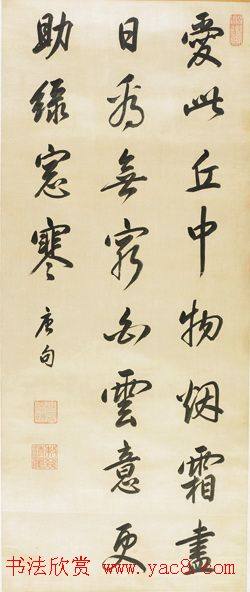 愛此丘中物烟霜盡
日看無窮白雲意更
助綠窓寒 唐句
书法欣赏 www.yac8.com